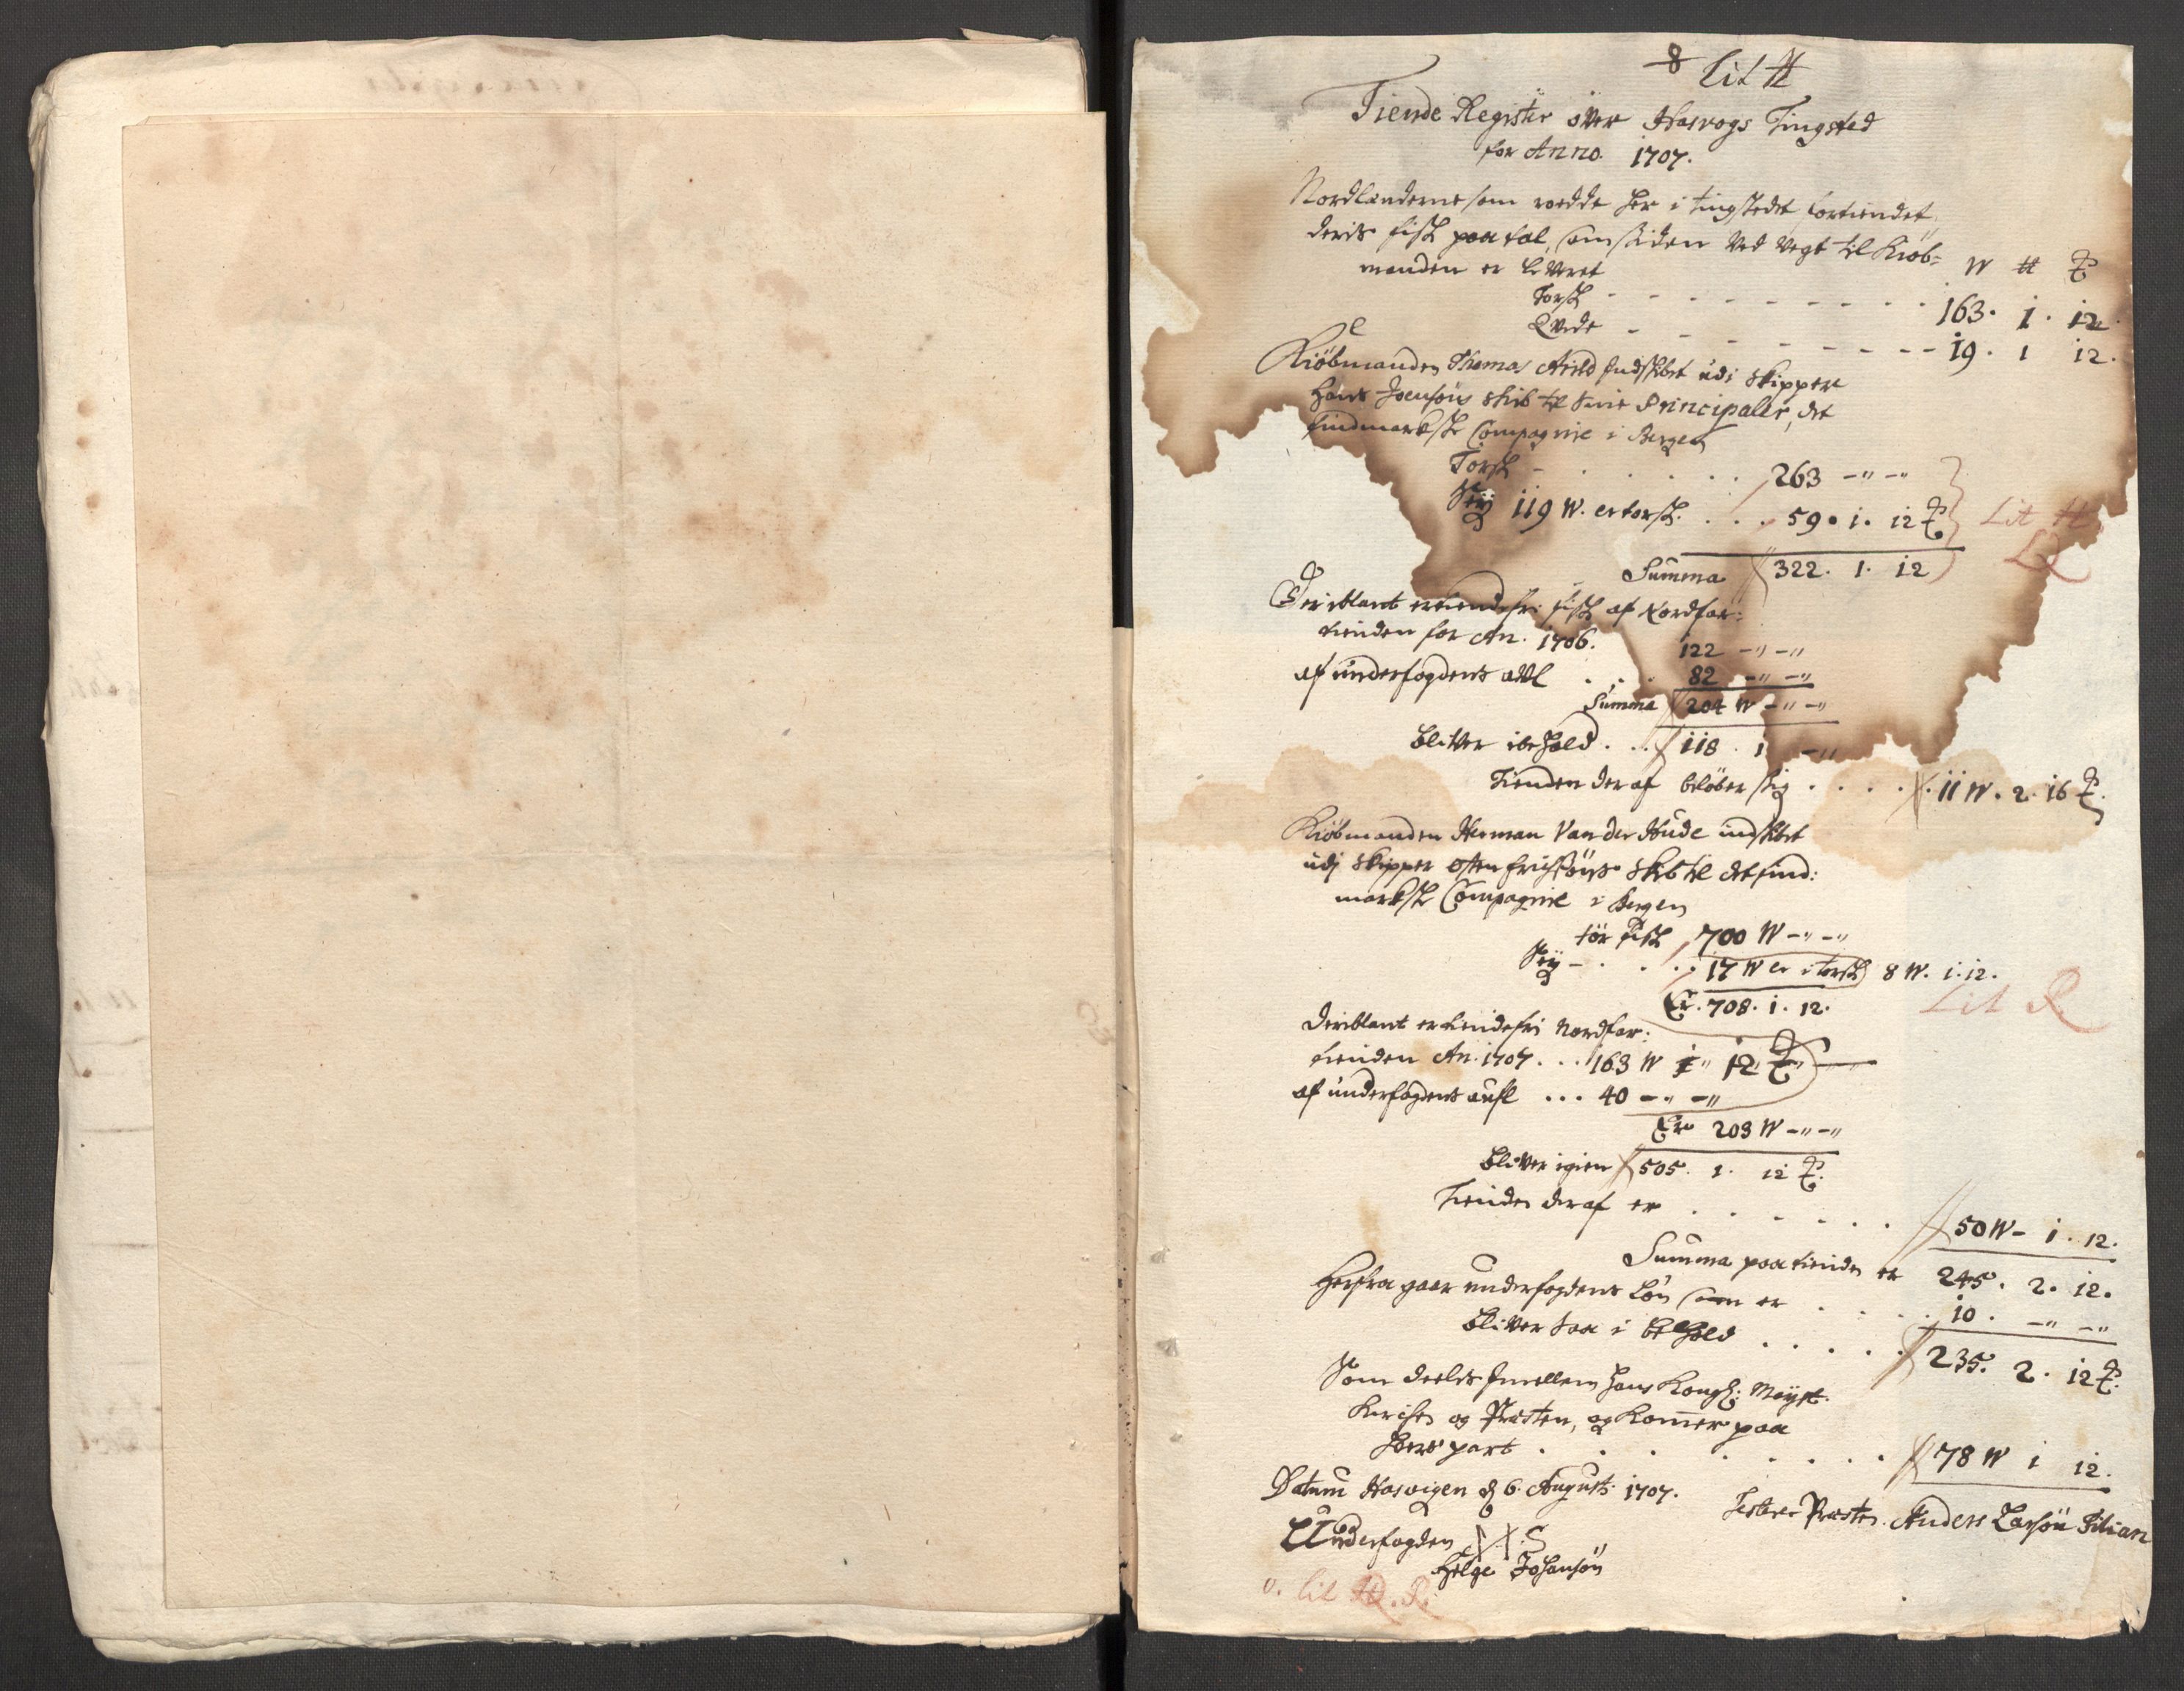 8 Lit H
Tiende Register över Hasvogs Tingsted
for Anno 1707.
Nordlænderne som roedde her i tingstedet fortiendet
deris fisk paa tal, som siden ved vegt til Kiøb=
manden er leveret W ℔
Torsk - - - - - - - - - 163. 1. 12
Qvede - - - - - - - - 19. 1 12.
Kiöbmanden Thomas indskibet udi Skipper
Hans Joensöns skib til sine Principaler, det
findmarkske Compagnie i Bergen
Torsk - . . . . . 263 -"-"
Seÿ 119 W. er torsk. . . . 59. 1. 12 ℔ Lit H
Summa 322. 1. 12
Deriblant er tiendefri fisk af Nordfar:
tienden for An. 1706. 122 -"-"
af underfogdens avl . . . 82 -"-"
Summa 204 W -"-"
bliver i behold . . . 118. 1 -"
Tienden der af beløber sig . . . . 11 W. 2. 16 ℔.
Kiöbmanden Herman Van der Hude indskibet
udj Skipper Osten Erichsöns Skib til det find:
markske Compagnie i Bergen
tör fisk 700 W -"-"
Seÿ - . . . . 17 W er i torsk 8 W. 1. 12.
Er. 708. 1. 12. Lit R
Deriblant er tiendefri Nordfar:
tienden An. 1707 . . . 163 W 1" 12 ℔"
af underfogdens aufl . . . 40 -"-"
Er 203 W -"-"
bliver igien 505. 1. 12 ℔.
Tienden deraf er . . . . . . 50 W - 1. 12.
Summa paa tienden er 245. 2. 12.
Herfra gaar underfogdens Lön som er . . . . 10. -"-"
bliver saa i behold . . . . . 235. 2. 12 ℔.
Som deelis imellem Hans Kongl: Mayst.
Kirchen og Præsten, og Kommer paa
hvers part . . . . . . . . 78 W 1 12.
Datum Hasvigen d 6. Augusti 1707.
Tester Præsten. Anders Larsön Filian
Underfogden H.I.S
Helge Johansön
v. lit H. R.